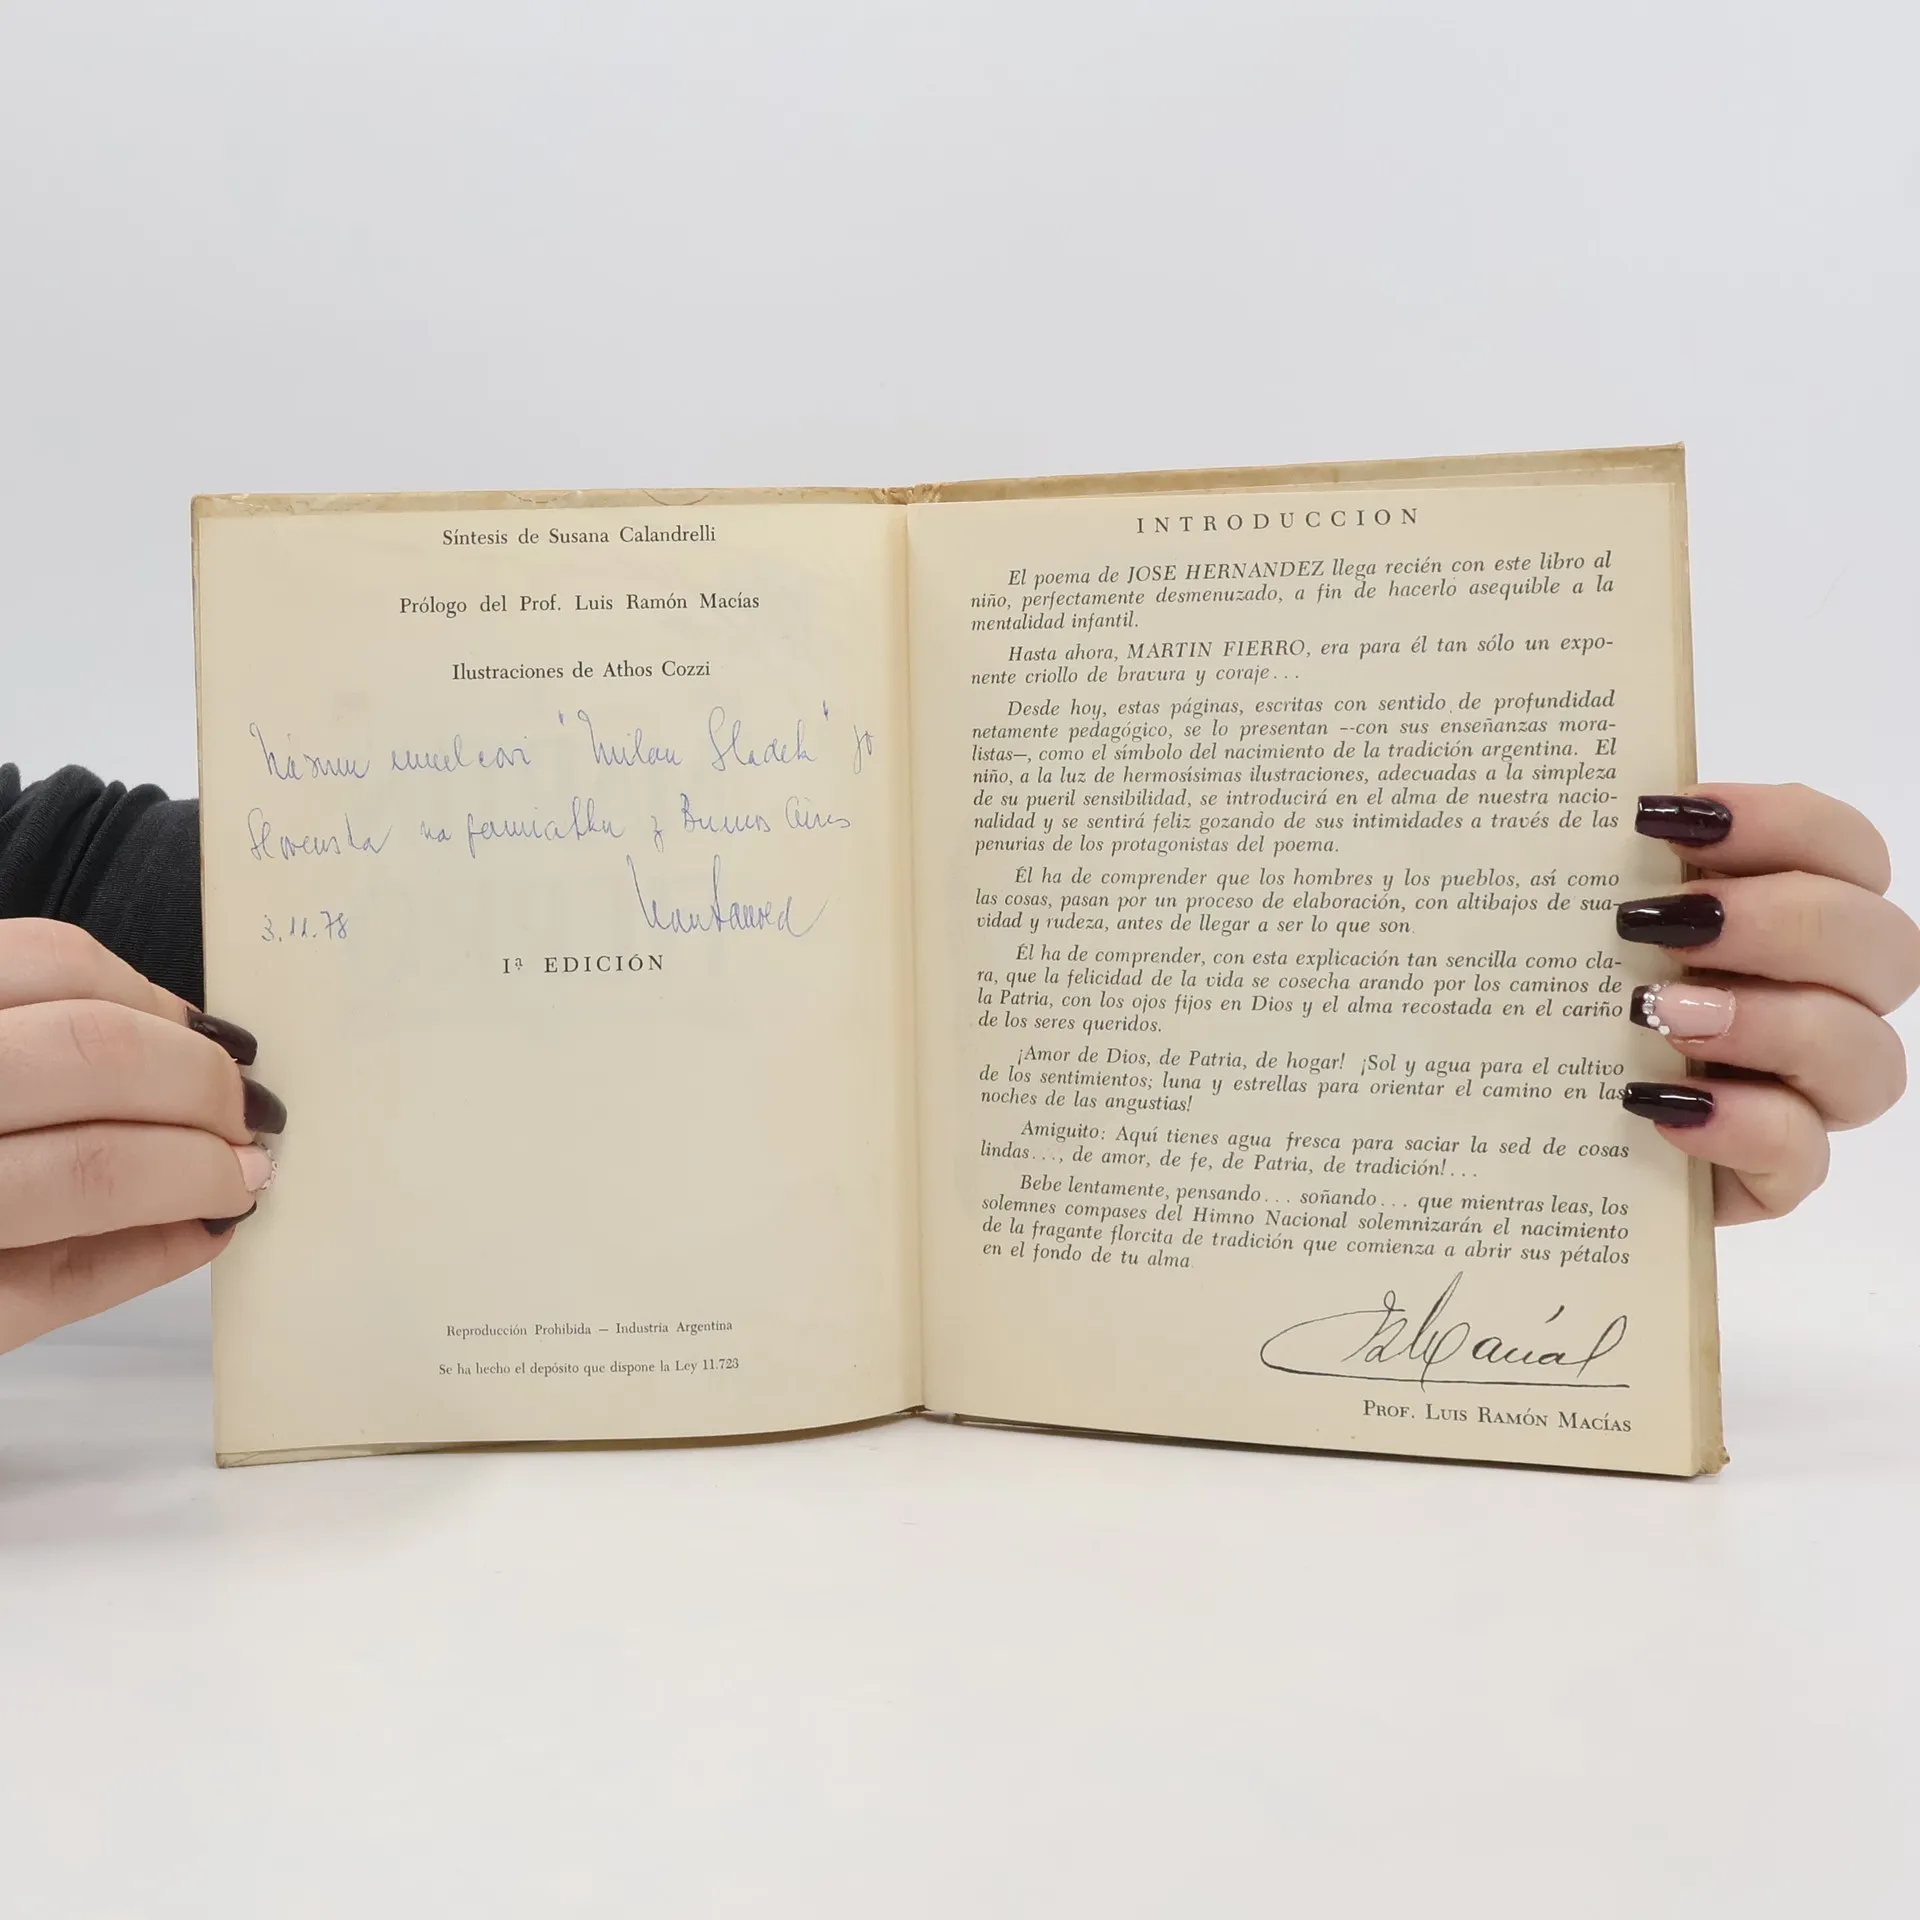 Síntesis de Susana Calandrelli
Prólogo del Prof. Luis Ramón Macías
Ilustraciones de Athos Cozzi
"Milan Sladek" zo
Slovenska na pamiatku z Buenos Aires
3.11.78
Iª EDICIÓN
Reproducción Prohibida — Industria Argentina
Se ha hecho el depósito que dispone la Ley 11.723
INTRODUCCION
El poema de JOSE HERNANDEZ llega recién con este libro al
niño, perfectamente desmenuzado, a fin de hacerlo asequible a la
mentalidad infantil.
Hasta ahora, MARTIN FIERRO, era para él tan sólo un expo-
nente criollo de bravura y coraje...
Desde hoy, estas páginas, escritas con sentido de profundidad
netamente pedagógico, se lo presentan --con sus enseñanzas mora-
listas—, como el símbolo del nacimiento de la tradición argentina. El
niño, a la luz de hermosísimas ilustraciones, adecuadas a la simpleza
de su pueril sensibilidad, se introducirá en el alma de nuestra nacio-
nalidad y se sentirá feliz gozando de sus intimidades a través de las
penurias de los protagonistas del poema.
Él ha de comprender que los hombres y los pueblos, así como
las cosas, pasan por un proceso de elaboración, con altibajos de sua-
vidad y rudeza, antes de llegar a ser lo que son.
Él ha de comprender, con esta explicación tan sencilla como cla-
ra, que la felicidad de la vida se cosecha arando por los caminos de
la Patria, con los ojos fijos en Dios y el alma recostada en el cariño
de los seres queridos.
¡Amor de Dios, de Patria, de hogar! ¡Sol y agua para el cultivo
de los sentimientos; luna y estrellas para orientar el camino en las
noches de las angustias!
Amiguito: Aquí tienes agua fresca para saciar la sed de cosas
lindas..., de amor, de fe, de Patria, de tradición!...
Bebe lentamente, pensando... soñando... que mientras leas, los
solemnes compases del Himno Nacional solemnizarán el nacimiento
de la fragante florcita de tradición que comienza a abrir sus pétalos
en el fondo de tu alma
PROF. LUIS RAMÓN MACÍAS